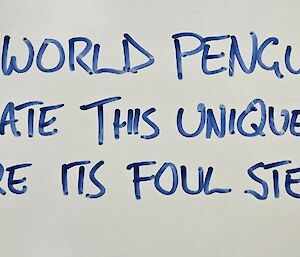 WORLD PENGU
ATE THIS UNIQUE
RE ITS FOUL STE